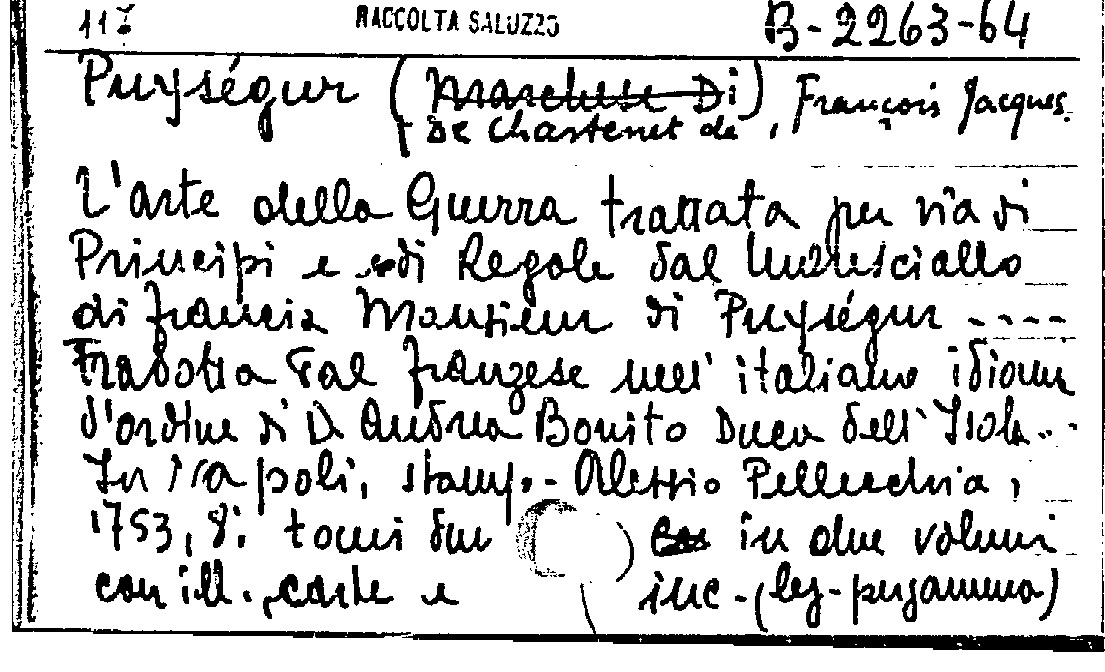 117 RACCOLTA SALUZZO B-2263-64
Puységur (Marchese Di), François Jacques.
De Chastenet de
L'arte della Guerra trattata per via di
Principi e di Regole dal Maresciallo
di Francia Monsieur di Puységur ----
Tradotta dal franzese nell' italiano idioma
d'ordine di D. Andrea Bonito Duca dell' Isola..
In Napoli, stamp.. Alessio Pellecchia,
1753, 8°. tomi due in due volumi
con ill., carte e inc - (leg - pergamena)